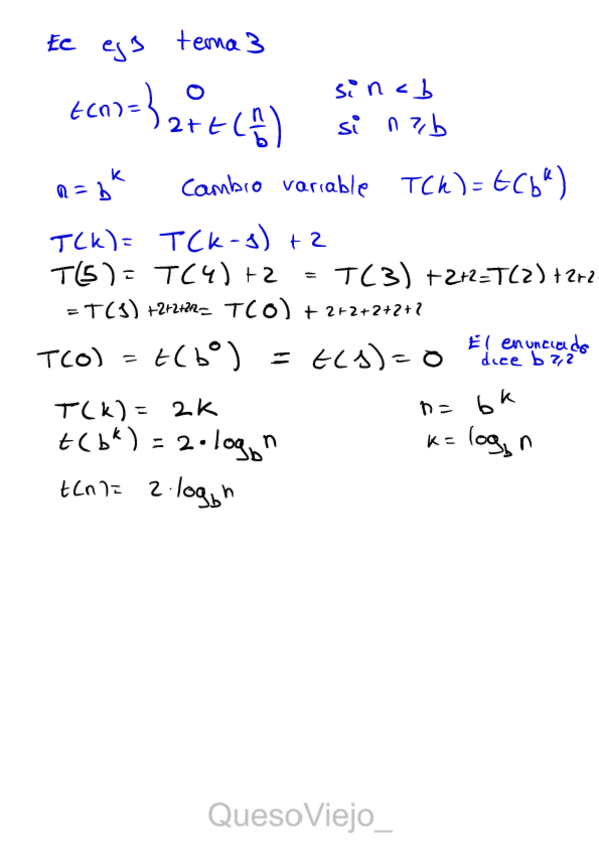 Ec ej 1 tema 3
t(n) = { 0 si n < b
2 + t(n/b) si n ≥ b
n = b^k Cambio variable T(k) = t(b^k)
T(k) = T(k-1) + 2
T(5) = T(4) + 2 = T(3) + 2+2 = T(2) + 2+2
= T(1) + 2+2+2+2 = T(0) + 2+2+2+2+2
T(0) = t(b^0) = t(1) = 0 El enunciado dice b ≥ 2
T(k) = 2k n = b^k
t(b^k) = 2 · log_b n k = log_b n
t(n) = 2 · log_b n
QuesoViejo_